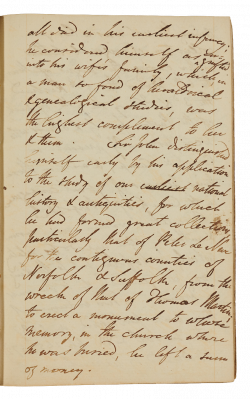 all died in his earliest infancy;
he considered himself as engrafted
into his wife's family, which in
a man so fond of heraldrical
& genealogical studies, was
the highest complement to her
& them. Sir John distinguished
himself early by his application
to the study of our earliest national
history & antiquities, for which
he had formed great collections,
particularly that of Peter le Neve
for the contiguous counties of
Norfolk & Suffolk, from the
wreck of that of Thomas Martin,
to erect a monument to whose
memory, in the church where
he was buried, he left a sum
of money.